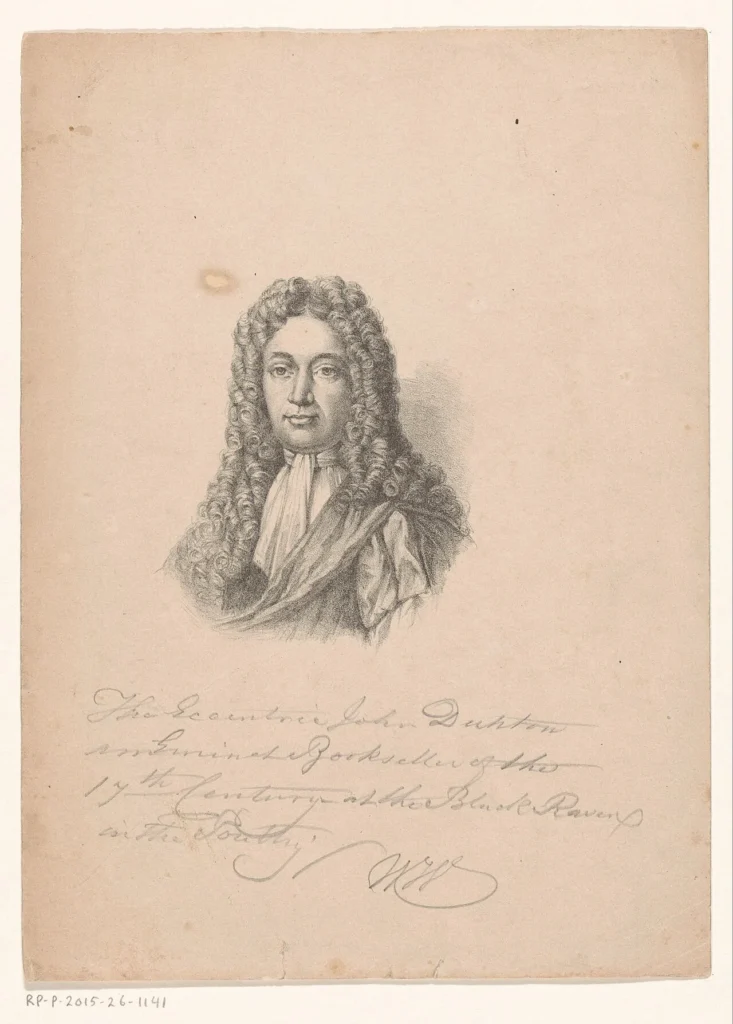 The Eccentric John Dunton
an Eminent Bookseller of the
17th Century at the Black Raven
in the Poultry
WW
RP-P-2015-26-1141